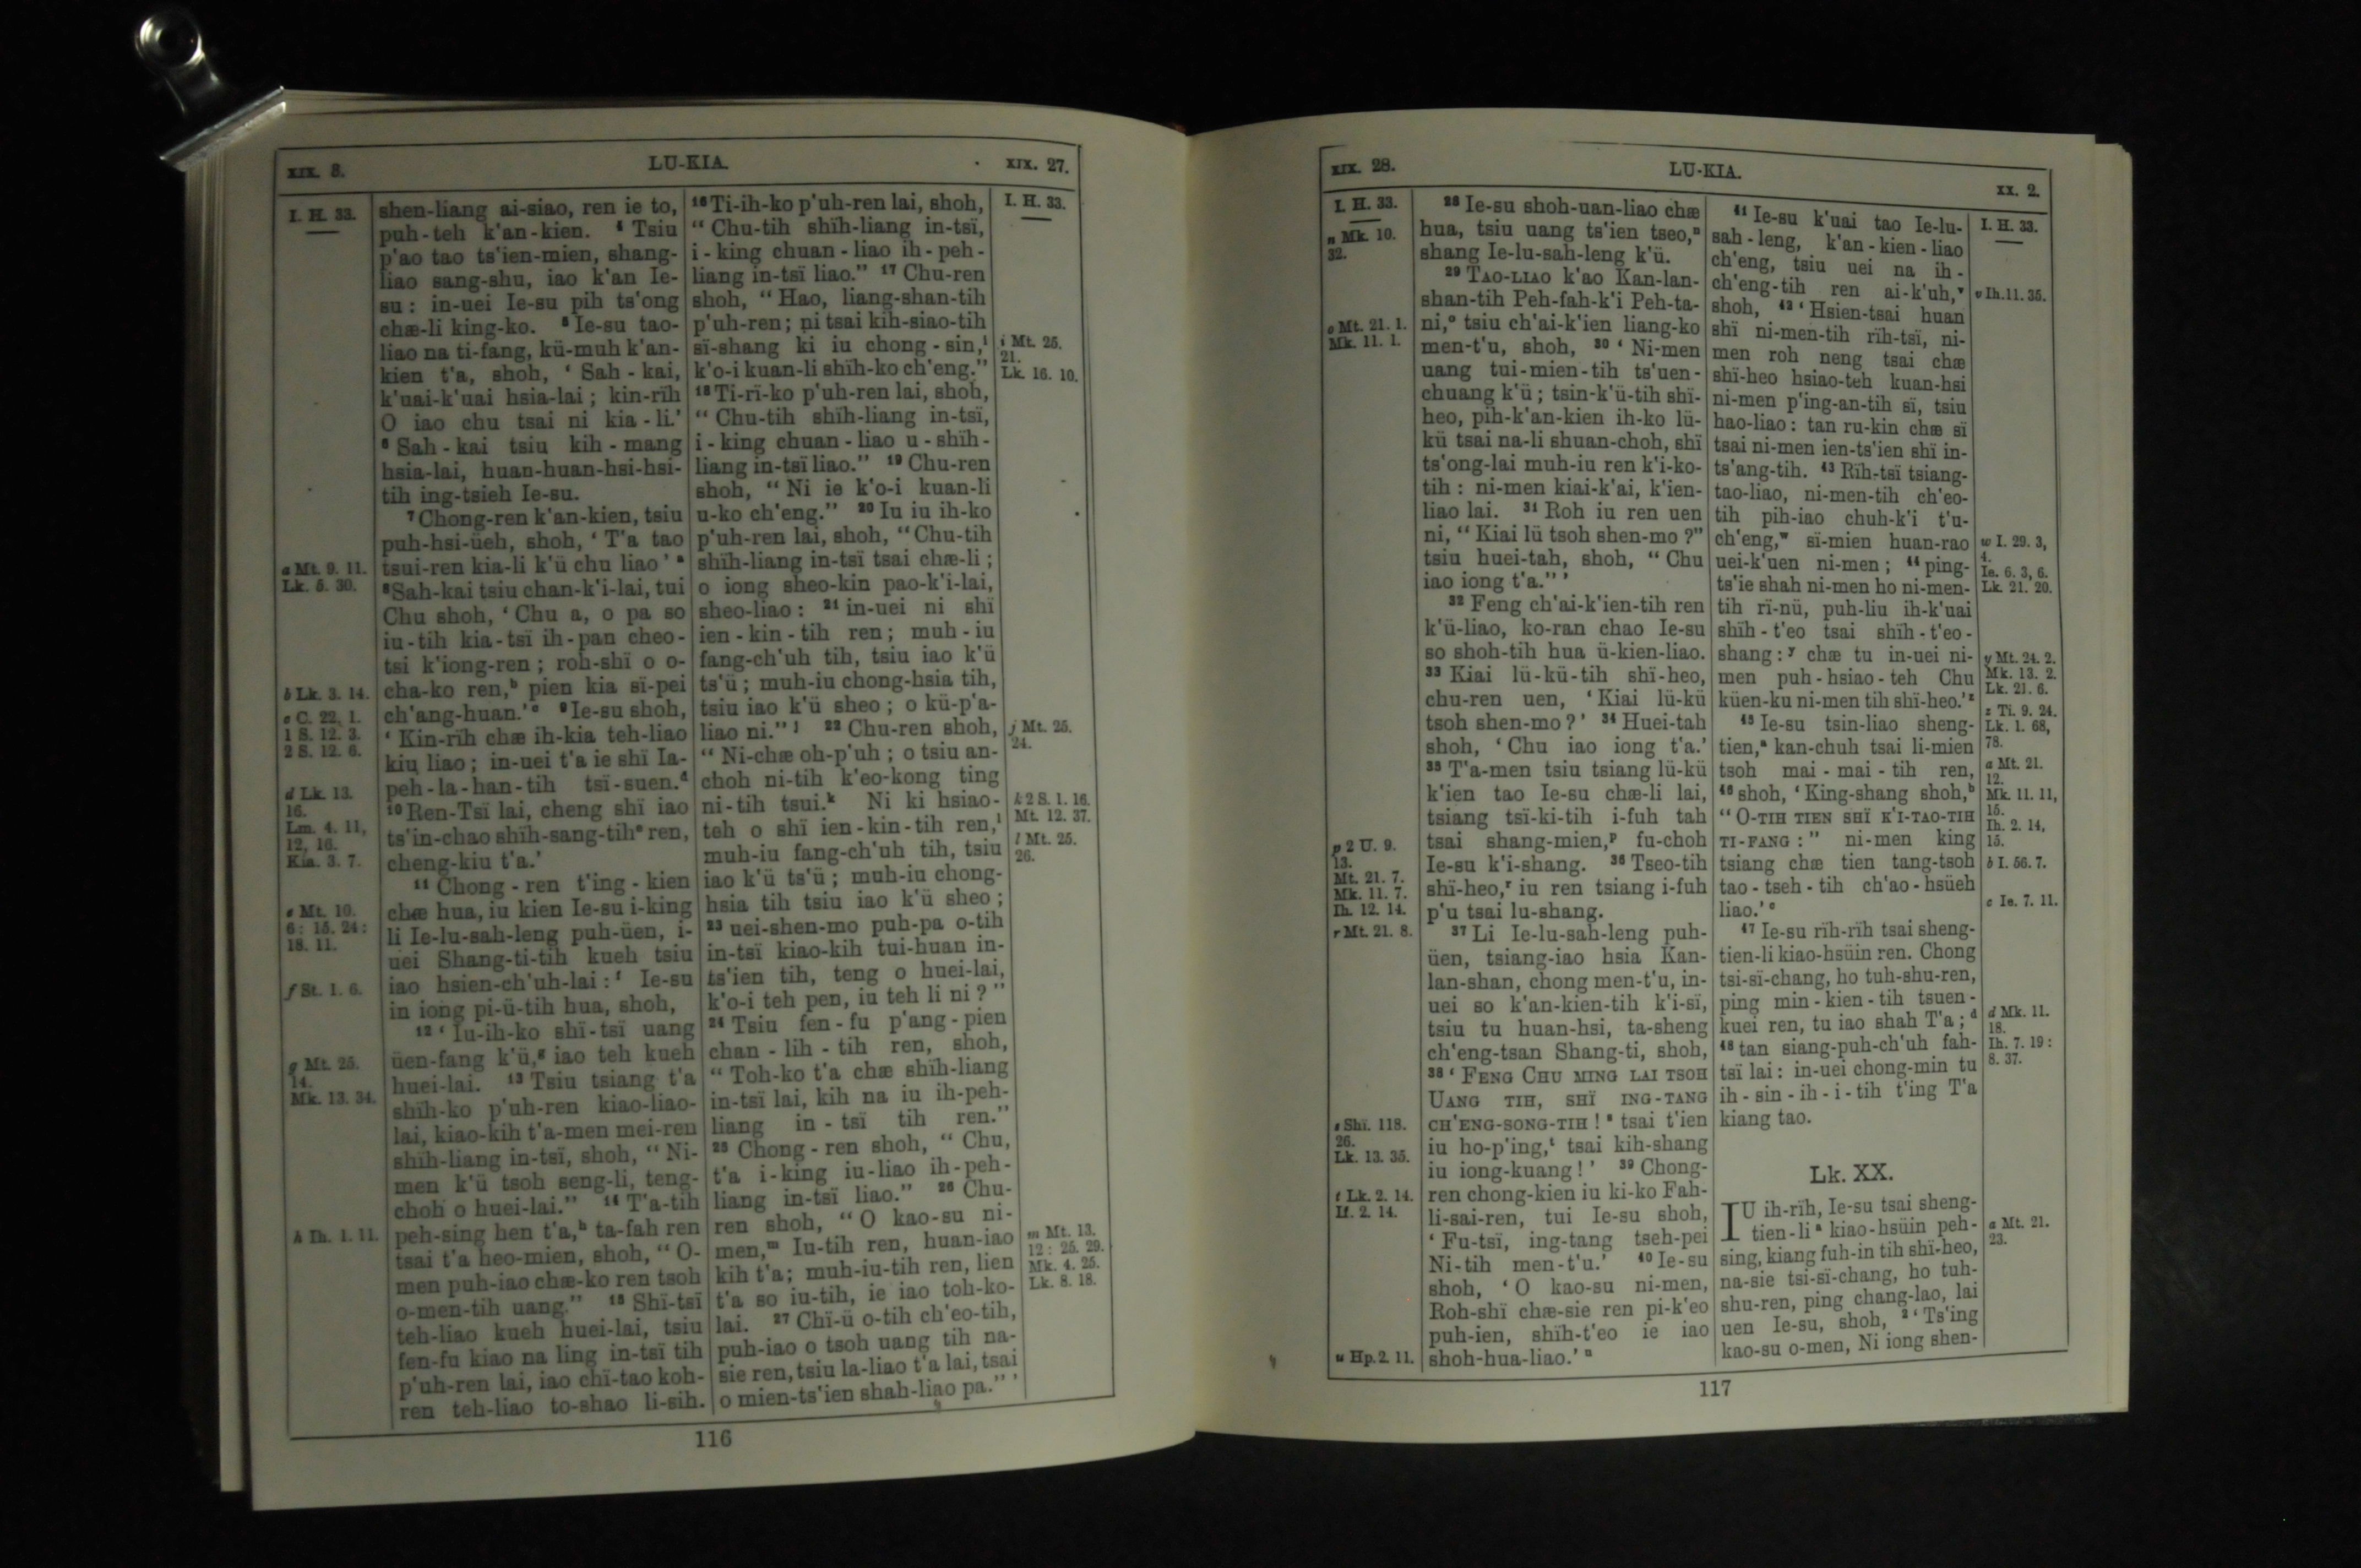 XIX. 3.
LU-KIA.
XIX. 27.
I. H. 33.
a Mt. 9. 11.
Lk. 5. 30.
b Lk. 3. 14.
c C. 22, 1.
1 S. 12. 3.
2 S. 12. 6.
d Lk. 13.
16.
Lm. 4. 11,
12, 16.
Kia. 3. 7.
e Mt. 10.
6: 15. 24:
18. 11.
f St. 1. 6.
g Mt. 25.
14.
Mk. 13. 34.
h Ih. 1. 11.
shen-liang ai-siao, ren ie to,
puh-teh k'an-kien. ⁴ Tsiu
p'ao tao ts'ien-mien, shang-
liao sang-shu, iao k'an Ie-
su: in-uei Ie-su pih ts'ong
chæ-li king-ko. ⁵ Ie-su tao-
liao na ti-fang, kü-muh k'an-
kien t'a, shoh, ‘ Sah-kai,
k'uai-k'uai hsia-lai; kin-rïh
O iao chu tsai ni kia-li.’
⁶ Sah-kai tsiu kih-mang
hsia-lai, huan-huan-hsi-hsi-
tih ing-tsieh Ie-su.
⁷ Chong-ren k'an-kien, tsiu
puh-hsi-üeh, shoh, ‘ T'a tao
tsui-ren kia-li k'ü chu liao’ ᵃ
⁸ Sah-kai tsiu chan-k'i-lai, tui
Chu shoh, ‘ Chu a, o pa so
iu-tih kia-tsï ih-pan cheo-
tsi k'iong-ren; roh-shï o o-
cha-ko ren,ᵇ pien kia sï-pei
ch'ang-huan.’ᶜ ⁹ Ie-su shoh,
‘ Kin-rïh chæ ih-kia teh-liao
kiu liao; in-uei t'a ie shï Ia-
peh-la-han-tih tsï-suen.ᵈ
¹⁰ Ren-Tsï lai, cheng shï iao
ts'in-chao shïh-sang-tihᵉ ren,
cheng-kiu t'a.’
¹¹ Chong-ren t'ing-kien
chæ hua, iu kien Ie-su i-king
li Ie-lu-sah-leng puh-üen, i-
uei Shang-ti-tih kueh tsiu
iao hsien-ch'uh-lai:ᶠ Ie-su
in iong pi-ü-tih hua, shoh,
¹² ‘ Iu-ih-ko shï-tsï uang
üen-fang k'ü,ᵍ iao teh kueh
huei-lai. ¹³ Tsiu tsiang t'a
shïh-ko p'uh-ren kiao-liao-
lai, kiao-kih t'a-men mei-ren
shïh-liang in-tsï, shoh, “ Ni-
men k'ü tsoh seng-li, teng-
choh o huei-lai.” ¹⁴ T'a-tih
peh-sing hen t'a,ʰ ta-fah ren
tsai t'a heo-mien, shoh, “ O-
men puh-iao chæ-ko ren tsoh
o-men-tih uang.” ¹⁵ Shï-tsï
teh-liao kueh huei-lai, tsiu
fen-fu kiao na ling in-tsï tih
p'uh-ren lai, iao chï-tao koh-
ren teh-liao to-shao li-sih.
¹⁶ Ti-ih-ko p'uh-ren lai, shoh,
“ Chu-tih shïh-liang in-tsï,
i-king chuan-liao ih-peh-
liang in-tsï liao.” ¹⁷ Chu-ren
shoh, “ Hao, liang-shan-tih
p'uh-ren; ni tsai kih-siao-tih
sï-shang ki iu chong-sin,ⁱ
k'o-i kuan-li shïh-ko ch'eng.”
¹⁸ Ti-rï-ko p'uh-ren lai, shoh,
“ Chu-tih shïh-liang in-tsï,
i-king chuan-liao u-shïh-
liang in-tsï liao.” ¹⁹ Chu-ren
shoh, “ Ni ie k'o-i kuan-li
u-ko ch'eng.” ²⁰ Iu iu ih-ko
p'uh-ren lai, shoh, “ Chu-tih
shïh-liang in-tsï tsai chæ-li;
o iong sheo-kin pao-k'i-lai,
sheo-liao: ²¹ in-uei ni shï
ien-kin-tih ren; muh-iu
fang-ch'uh tih, tsiu iao k'ü
ts'ü; muh-iu chong-hsia tih,
tsiu iao k'ü sheo; o kü-p'a-
liao ni.” ʲ ²² Chu-ren shoh,
“ Ni-chæ oh-p'uh; o tsiu an-
choh ni-tih k'eo-kong ting
ni-tih tsui.ᵏ Ni ki hsiao-
teh o shï ien-kin-tih ren,ˡ
muh-iu fang-ch'uh tih, tsiu
iao k'ü ts'ü; muh-iu chong-
hsia tih tsiu iao k'ü sheo;
²³ uei-shen-mo puh-pa o-tih
in-tsï kiao-kih tui-huan in-
ts'ien tih, teng o huei-lai,
k'o-i teh pen, iu teh li ni?”
²⁴ Tsiu fen-fu p'ang-pien
chan-lih-tih ren, shoh,
“ Toh-ko t'a chæ shïh-liang
in-tsï lai, kih na iu ih-peh-
liang in-tsï tih ren.”
²⁵ Chong-ren shoh, “ Chu,
t'a i-king iu-liao ih-peh-
liang in-tsï liao.” ²⁶ Chu-
ren shoh, “ O kao-su ni-
men,ᵐ Iu-tih ren, huan-iao
kih t'a; muh-iu-tih ren, lien
t'a so iu-tih, ie iao toh-ko-
lai. ²⁷ Chï-ü o-tih ch'eo-tih,
puh-iao o tsoh uang tih na-
sie ren, tsiu la-liao t'a lai, tsai
o mien-ts'ien shah-liao pa.” ’
I. H. 33.
i Mt. 25.
21.
Lk. 16. 10.
j Mt. 25.
24.
k 2 S. 1. 16.
Mt. 12. 37.
l Mt. 25.
26.
m Mt. 13.
12: 25. 29.
Mk. 4. 25.
Lk. 8. 18.
116
XIX. 28.
LU-KIA.
XX. 2.
I. H. 33.
n Mk. 10.
32.
o Mt. 21. 1.
Mk. 11. 1.
p 2 U. 9.
13.
Mt. 21. 7.
Mk. 11. 7.
Ih. 12. 14.
r Mt. 21. 8.
s Shï. 118.
26.
Lk. 13. 35.
t Lk. 2. 14.
If. 2. 14.
u Hp. 2. 11.
²⁸ Ie-su shoh-uan-liao chæ
hua, tsiu uang ts'ien tseo,ⁿ
shang Ie-lu-sah-leng k'ü.
²⁹ TAO-LIAO k'ao Kan-lan-
shan-tih Peh-fah-k'i Peh-ta-
ni,ᵒ tsiu ch'ai-k'ien liang-ko
men-t'u, shoh, ³⁰ ‘ Ni-men
uang tui-mien-tih ts'uen-
chuang k'ü; tsin-k'ü-tih shï-
heo, pih-k'an-kien ih-ko lü-
kü tsai na-li shuan-choh, shï
ts'ong-lai muh-iu ren k'i-ko-
tih: ni-men kiai-k'ai, k'ien-
liao lai. ³¹ Roh iu ren uen
ni, “ Kiai lü tsoh shen-mo?”
tsiu huei-tah, shoh, “ Chu
iao iong t'a.” ’
³² Feng ch'ai-k'ien-tih ren
k'ü-liao, ko-ran chao Ie-su
so shoh-tih hua ü-kien-liao.
³³ Kiai lü-kü-tih shï-heo,
chu-ren uen, ‘ Kiai lü-kü
tsoh shen-mo?’ ³⁴ Huei-tah
shoh, ‘ Chu iao iong t'a.’
³⁵ T'a-men tsiu tsiang lü-kü
k'ien tao Ie-su chæ-li lai,
tsiang tsï-ki-tih i-fuh tah
tsai shang-mien,ᵖ fu-choh
Ie-su k'i-shang. ³⁶ Tseo-tih
shï-heo,ʳ iu ren tsiang i-fuh
p'u tsai lu-shang.
³⁷ Li Ie-lu-sah-leng puh-
üen, tsiang-iao hsia Kan-
lan-shan, chong men-t'u, in-
uei so k'an-kien-tih k'i-sï,
tsiu tu huan-hsi, ta-sheng
ch'eng-tsan Shang-ti, shoh,
³⁸ ‘ FENG CHU MING LAI TSOH
UANG TIH, SHÏ ING-TANG
CH'ENG-SONG-TIH! ˢ tsai t'ien
iu ho-p'ing,ᵗ tsai kih-shang
iu iong-kuang!’ ³⁹ Chong-
ren chong-kien iu ki-ko Fah-
li-sai-ren, tui Ie-su shoh,
‘ Fu-tsï, ing-tang tseh-pei
Ni-tih men-t'u.’ ⁴⁰ Ie-su
shoh, ‘ O kao-su ni-men,
Roh-shï chæ-sie ren pi-k'eo
puh-ien, shïh-t'eo ie iao
shoh-hua-liao.’ ᵘ
⁴¹ Ie-su k'uai tao Ie-lu-
sah-leng, k'an-kien-liao
ch'eng, tsiu uei na ih-
ch'eng-tih ren ai-k'uh,ᵛ
shoh, ⁴² ‘ Hsien-tsai huan
shï ni-men-tih rïh-tsï, ni-
men roh neng tsai chæ
shï-heo hsiao-teh kuan-hsi
ni-men p'ing-an-tih sï, tsiu
hao-liao: tan ru-kin chæ sï
tsai ni-men ien-ts'ien shï in-
ts'ang-tih. ⁴³ Rïh-tsï tsiang-
tao-liao, ni-men-tih ch'eo-
tih pih-iao chuh-k'i t'u-
ch'eng,ʷ sï-mien huan-rao
uei-k'uen ni-men; ⁴⁴ ping-
ts'ie shah ni-men ho ni-men-
tih rï-nü, puh-liu ih-k'uai
shïh-t'eo tsai shïh-t'eo-
shang:ʸ chæ tu in-uei ni-
men puh-hsiao-teh Chu
küen-ku ni-men tih shï-heo.’ᶻ
⁴⁵ Ie-su tsin-liao sheng-
tien,ᵃ kan-chuh tsai li-mien
tsoh mai-mai-tih ren,
⁴⁶ shoh, ‘ King-shang shoh,ᵇ
“ O-TIH TIEN SHÏ K'I-TAO-TIH
TI-FANG:” ni-men king
tsiang chæ tien tang-tsoh
tao-tseh-tih ch'ao-hsüeh
liao.’ ᶜ
⁴⁷ Ie-su rïh-rïh tsai sheng-
tien-li kiao-hsüin ren. Chong
tsi-sï-chang, ho tuh-shu-ren,
ping min-kien-tih tsuen-
kuei ren, tu iao shah T'a; ᵈ
⁴⁸ tan siang-puh-ch'uh fah-
tsï lai: in-uei chong-min tu
ih-sin-ih-i-tih t'ing T'a
kiang tao.
Lk. XX.
IU ih-rïh, Ie-su tsai sheng-
tien-li ᵃ kiao-hsüin peh-
sing, kiang fuh-in tih shï-heo,
na-sie tsi-sï-chang, ho tuh-
shu-ren, ping chang-lao, lai
uen Ie-su, shoh, ² ‘ Ts'ing
kao-su o-men, Ni iong shen-
I. H. 33.
v Ih. 11. 35.
w I. 29. 3,
4.
Ie. 6. 3, 6.
Lk. 21. 20.
y Mt. 24. 2.
Mk. 13. 2.
Lk. 21. 6.
z Ti. 9. 24.
Lk. 1. 68,
78.
a Mt. 21.
12.
Mk. 11. 11,
15.
Ih. 2. 14,
15.
b I. 56. 7.
c Ie. 7. 11.
d Mk. 11.
18.
Ih. 7. 19:
8. 37.
a Mt. 21.
23.
117